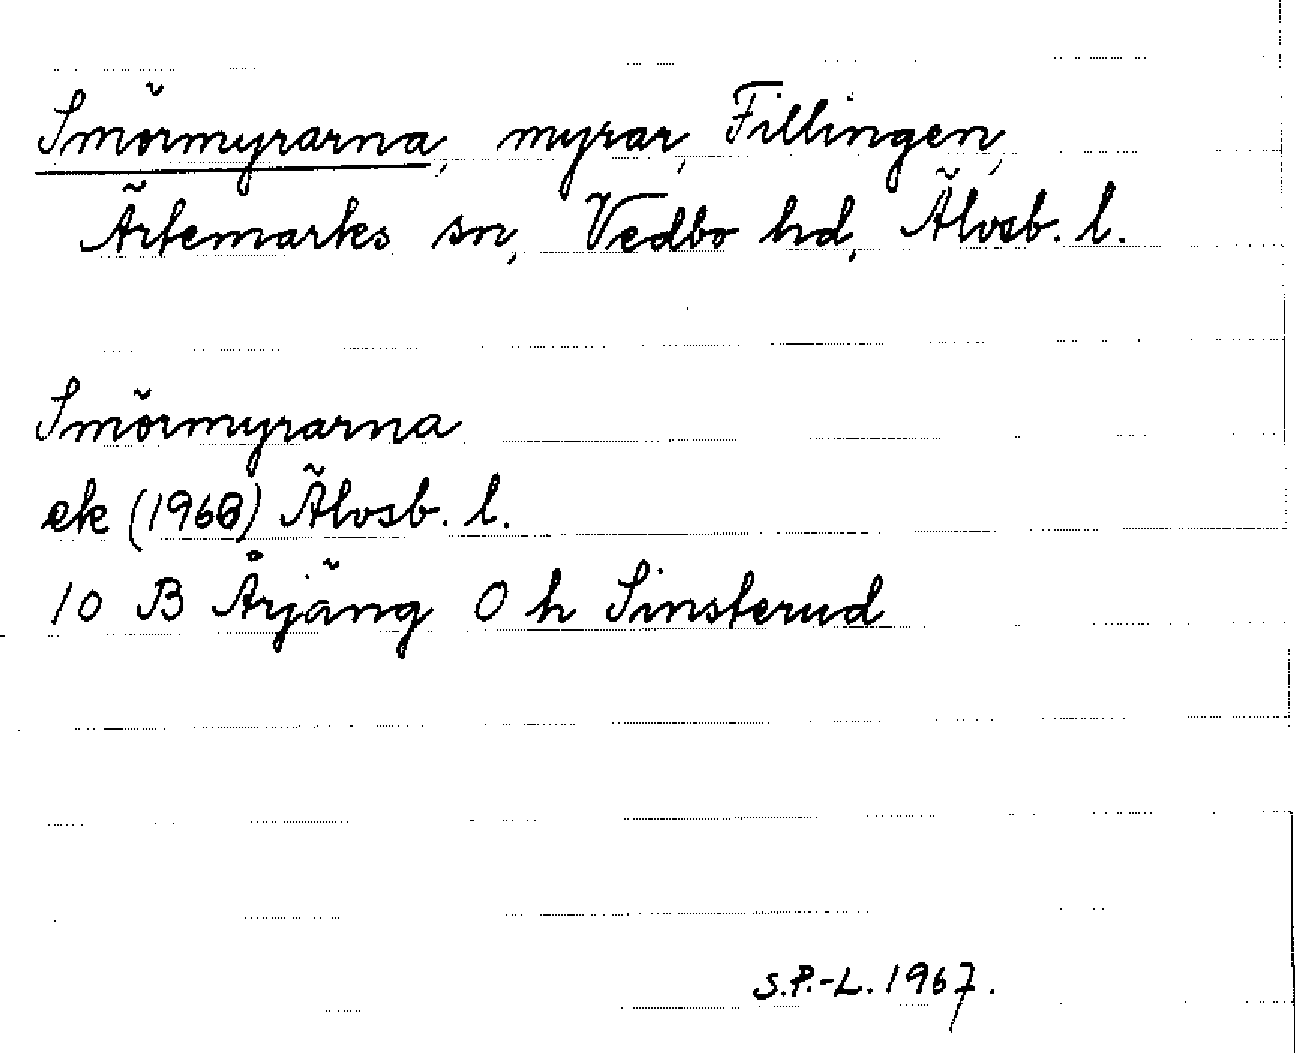 Smörmyrarna, myrar, Fillingen,
Ärtemarks sn, Vedbo hd, Älvsb. l.
Smörmyrarna
ek (1968) Älvsb. l.
10 B Årjäng 0 h Sinsterud
S.P.-L. 1967.